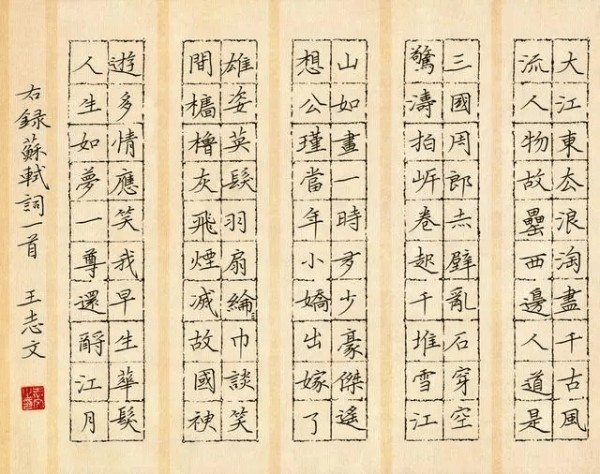 大江東去浪淘盡千古風
流人物故壘西邊人道是
三國周郎赤壁亂石穿空
驚濤拍岸卷起千堆雪江
山如畫一時多少豪傑遙
想公瑾當年小嬌出嫁了
雄姿英髮羽扇綸巾談笑
間檣櫓灰飛煙滅故國神
遊多情應笑我早生華髮
人生如夢一尊還酹江月
右錄蘇軾詞一首 王志文